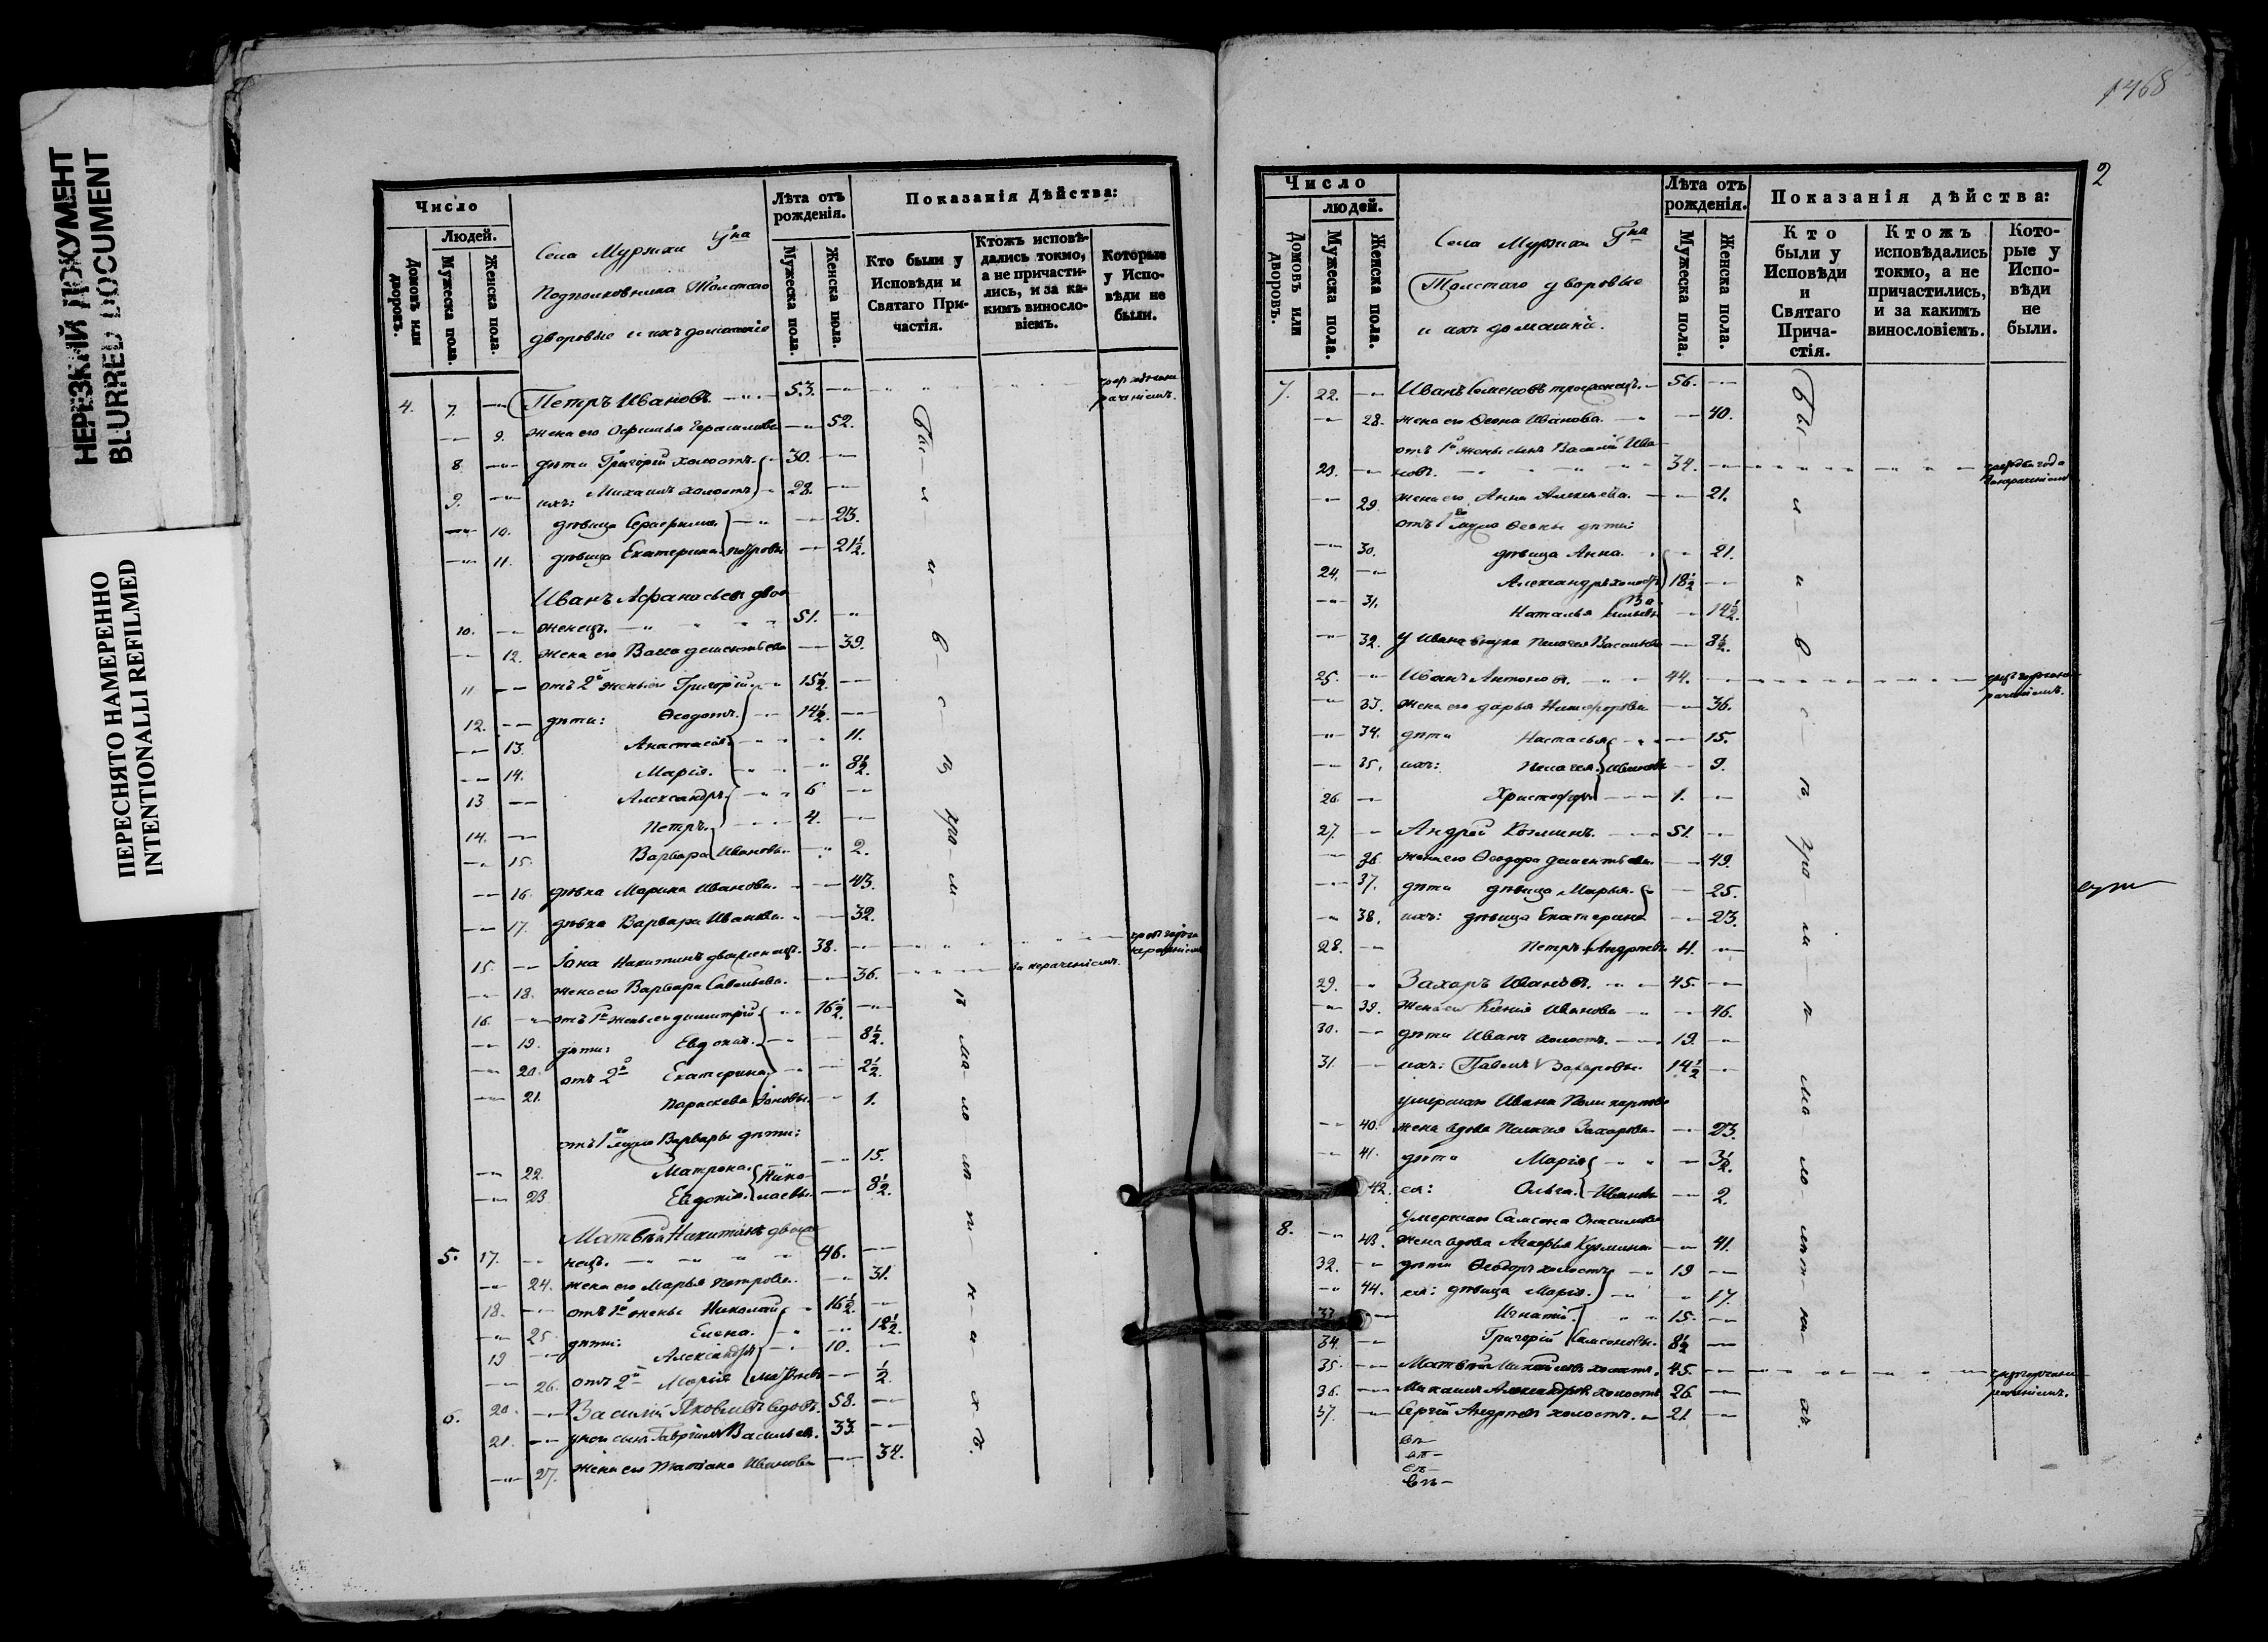 НЕРЕЗКИЙ ДОКУМЕНТ
BLURRED DOCUMENT
ПЕРЕСНЯТО НАМЕРЕННО
INTENTIONALLI REFILMED
Число
Людей.
Домовъ или дворовъ.
Мужеска пола.
Женска пола.
Села Мурзихи Гна
Подполковника Толстаго
дворовые и ихъ домашніе
Лѣта отъ рожденія.
Мужеска пола.
Женска пола.
Показанія Дѣйства:
Кто были у Исповѣди и Святаго Причастія.
Ктожъ исповѣдались токмо, а не причастились, и за какимъ винословіемъ.
Которые у Исповѣди не были.
4. 7. Петръ Ивановъ. 53.
9. жена его 52.
8. дѣти Григорій холостъ. 30.
9. ихъ: Михаилъ холостъ 28.
10. дѣвица Серафима 23.
11. дѣвица Екатерина Петровы 21½.
Иванъ Афанасьевъ двое
10. женецъ. 51.
12. жена его Васса Дементьева 39.
11. отъ 2й жены его Григорій 15½.
12. дѣти: Ѳеодотъ. 14½.
13. Анастасія 11.
14. Марія. 8½.
13 Александръ. 6
14. Петръ. 4.
15. Варвара Ивановы. 2.
16. дѣвка Марина Иванова. 43.
17. дѣвка Варвара Иванова. 32.
15. Іона Никитинъ двоеженецъ. 38.
18. жена его Варвара Савельева. 36. за нераченіемъ.
16. отъ 1й жены его Димитрій 16½.
19. дѣти: Евдокія. 8½.
20. отъ 2й Екатерина 2½.
21. Параскева Іоновы. 1.
отъ 1го мужа Варвары дѣти:
22. Матрона. Нико- 15.
23 Евдокія. лаевы. 8½.
Матвѣй Никитинъ двоеже
5. 17. нецъ. 46.
24. жена его Марья Петрова. 31.
18. отъ 1й жены Николай 16½.
25. дѣти: Елена. 12½.
19 Александръ 10.
26. отъ 2й Марія Матвѣевы ½.
6. 20. Василій Яковлевъ вдовъ. 58.
21. у него сынъ Гавріилъ Васильевъ. 33.
27. жена его Татіана Иванова 34.
1468
2
Число
людей.
Домовъ или дворовъ.
Мужеска пола.
Женска пола.
Села Мурзихи Гна
Толстаго дворовые
и ихъ домашніе.
Лѣта отъ рожденія.
Мужеска пола.
Женска пола.
Показанія дѣйства:
Кто были у Исповѣди и Святаго Причастія.
Ктожъ исповѣдались токмо, а не причастились, и за какимъ винословіемъ.
Которые у Исповѣди не были.
7. 22. Иванъ Семеновъ троеженецъ. 56.
28. жена его Ѳеона Иванова. 40.
отъ 1й жены сынъ Василій Ива
23. новъ. 34.
29. жена его Анна Алексеева. 21.
отъ 1го мужа Ѳеоны дѣти:
30. дѣвица Анна. 21.
24. Александръ холостъ 18½
31. Наталья Васильевы 14½.
32. у Ивана внука Пелагея Васильева 8½.
25. Иванъ Антоновъ. 44.
33. жена его Дарья Никифорова 36.
34. дѣти Настасья 15.
35. ихъ: Пелагея. Ивановы 9.
26. Христофоръ 1.
27. Андрей Козминъ. 51.
36. жена его Ѳеодора Дементьева. 49.
37. дѣти дѣвица Марья. 25.
38. ихъ: дѣвица Екатерина 23.
28. Петръ Андреевы 11.
29. Захаръ Ивановъ. 45.
39. жена его Ксенія Иванова 46.
30. дѣти Иванъ холостъ. 19.
31. ихъ: Павелъ Захаровы. 14½
умершаго Ивана Поликарпова
40. жена вдова Пелагея Захарова 23.
41. дѣти Марія 3½.
42. ея: Ольга. Ивановы 2.
8. умершаго Самсона Онисимова
43. жена вдова Агафья Кузмина 41.
32. дѣти Ѳеодоръ холостъ 19
44. ея: дѣвица Марія. 17.
33. Игнатій. 15.
34. Григорій Самсоновы. 8½
35. Матвѣй Михайловъ холостъ. 45.
36. Михаилъ Александровъ холостъ 26
37. Сергій Андреевъ холостъ. 21